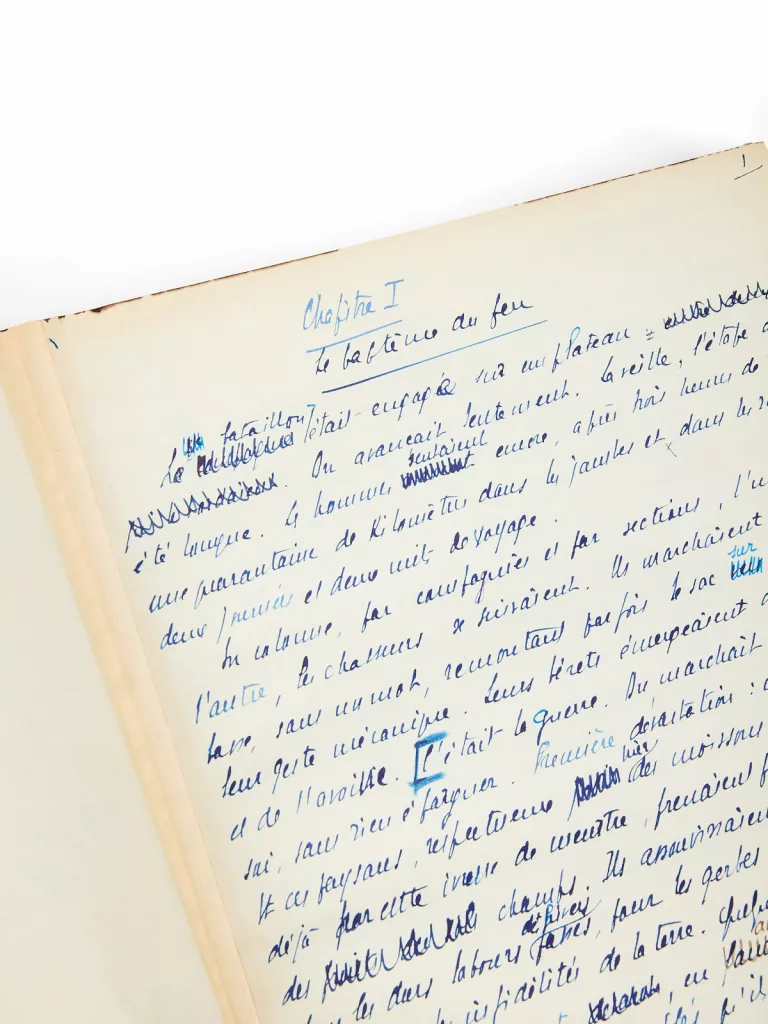 1
Chapitre I
Le baptême du feu
Le bataillon s'était engagé sur un plateau
On avançait lentement. La veille, l'étape a
été longue. Les hommes sentaient encore, après trois heures de
une quarantaine de kilomètres dans les jambes et, dans les r
deux journées et deux nuits de voyage.
En colonne, par compagnies et par sections, l'u
l'autre, les chasseurs se suivaient. Ils marchaient
basse, sans un mot, remontant parfois le sac sur
leur geste mécanique. Leurs bérets émergeaient
et de l'avoine. C'était la guerre. On marchait
soi, sans rien épargner. Première dévastation :
Et ces paysans, respectueux hier des moissons
déjà par cette ivresse de meurtre, prenaient
des champs. Ils assouvissaient
les durs labours passés, pour les gerbes
infidélités de la terre.
, en
qu'il